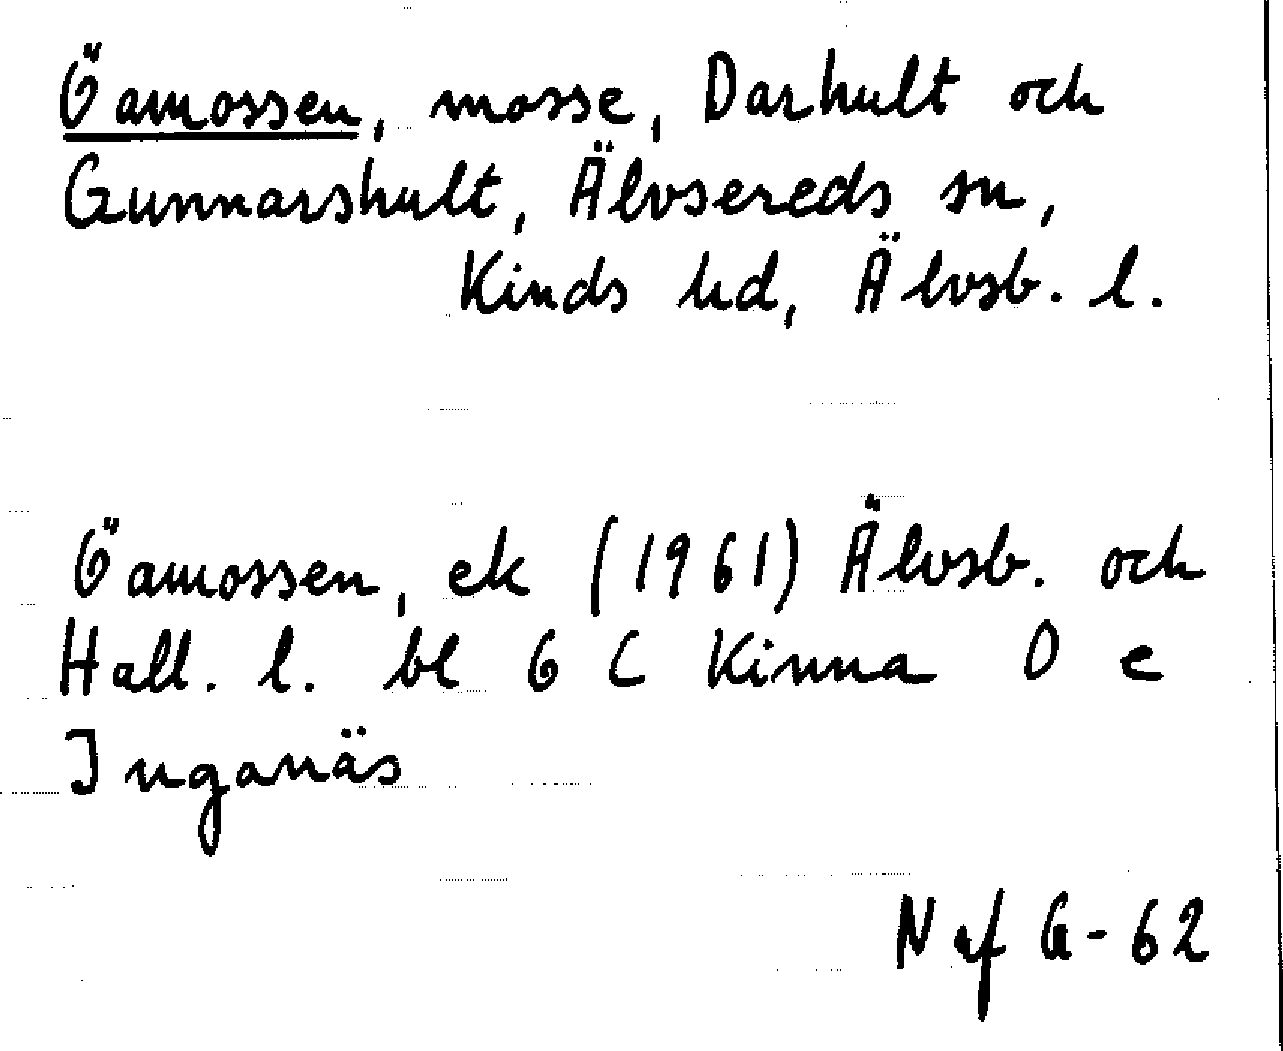 Öamossen, mosse, Darhult och
Gunnarshult, Älvsereds sn,
Kinds hd, Älvsb. l.
Öamossen, ek (1961) Älvsb. och
Hall. l. bl 6 C Kinna 0 e
Inganäs
N af G-62